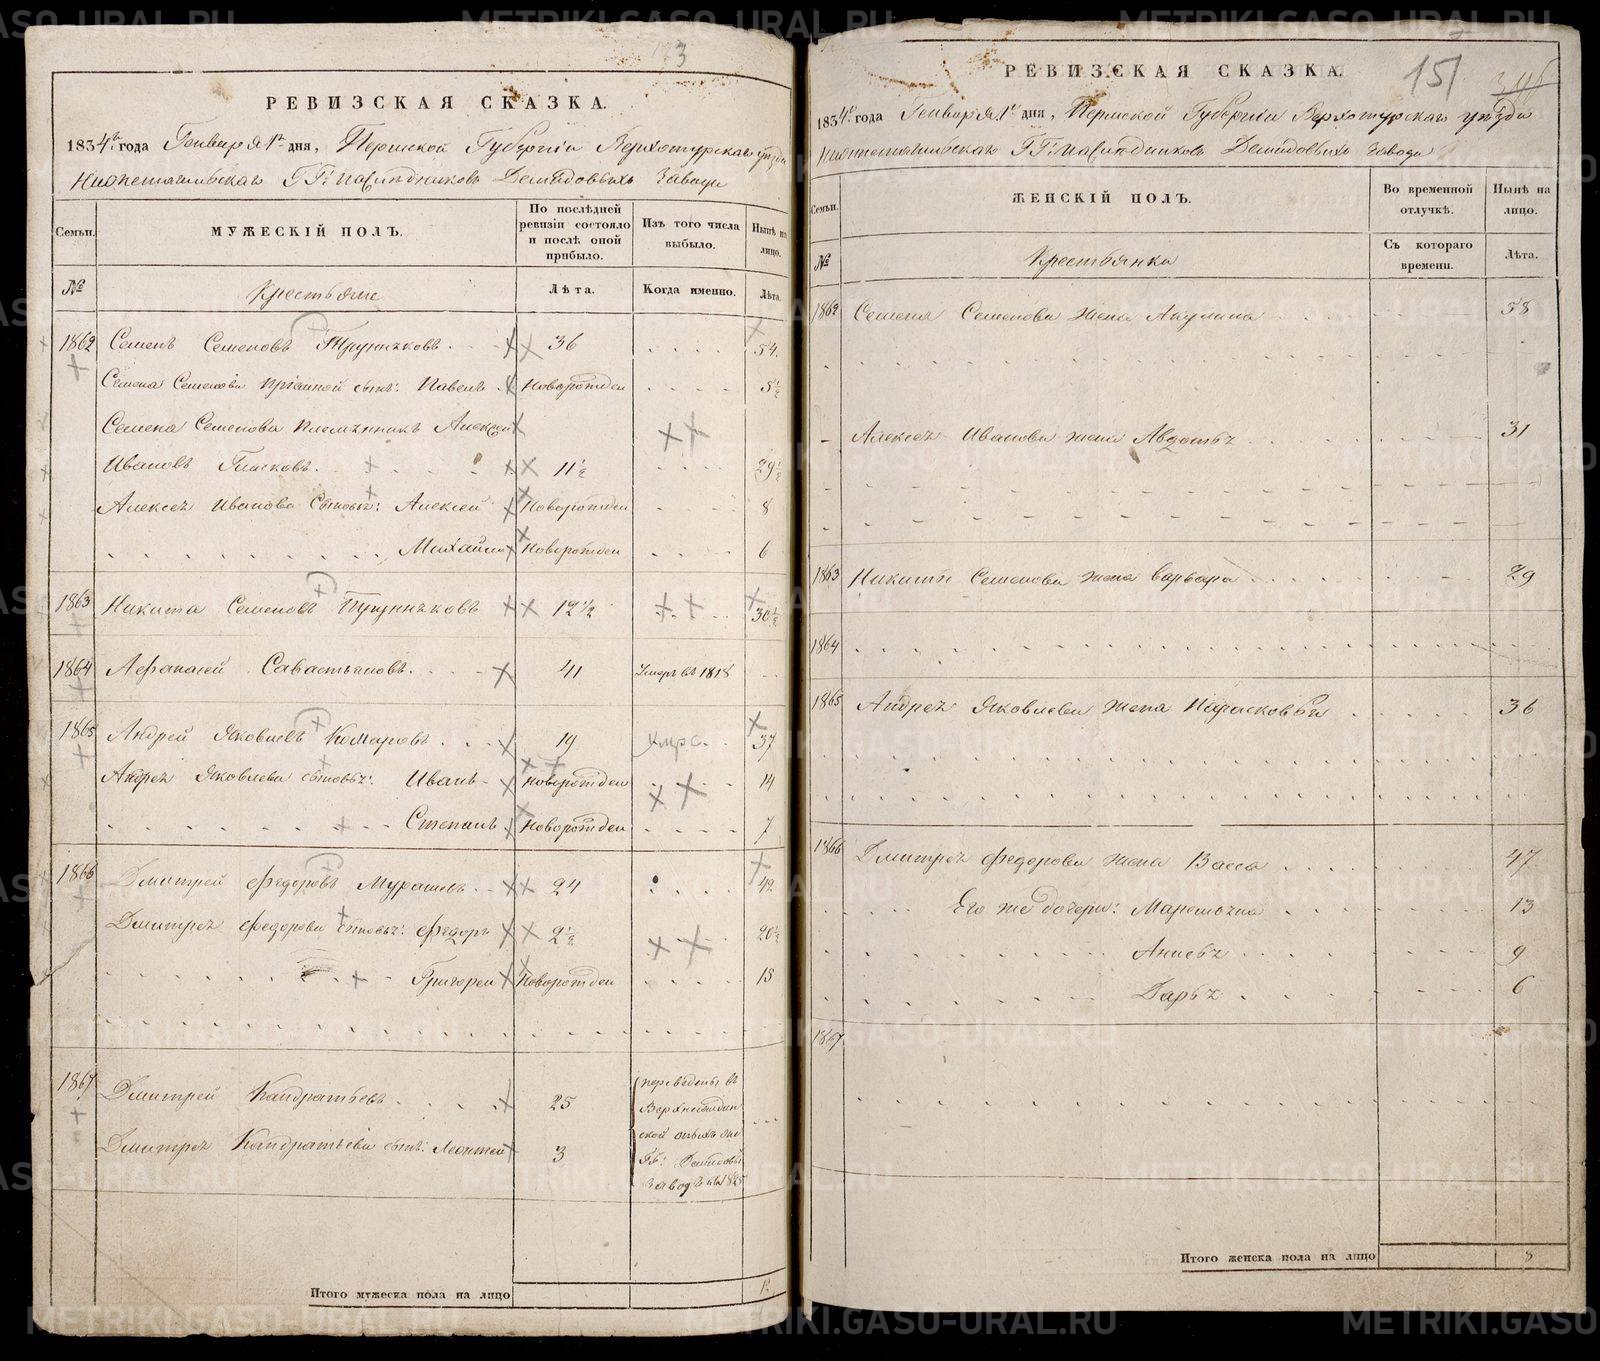 РЕВИЗСКАЯ СКАЗКА.
1834го года Генваря 1го дня, Пермской Губерніи Верхотурскаго уезда
Нижнетагильскаго ГГ: Наследниковъ Демидовыхъ Завода
Семьи.
МУЖЕСКІЙ ПОЛЪ.
По послѣдней ревизіи состояло и послѣ оной прибыло.
Изъ того числа выбыло.
Нынѣ на лицо.
№
Крестьяне
Лѣта.
Когда именно.
Лѣта.
1862 Семенъ Семеновъ 36 54.
Семена Семенова пріемной сынъ: Павелъ Новорожден 5½
Семена Семенова племянникъ Алексей
Ивановъ 11½ 29½
Алексея Иванова сыновья: Алексей Новорожден 8
Михайло Новорожден 6
1863 Никита Семеновъ 12½ 30½
1864 Афанасей Савастьяновъ 41 Умеръ въ 1818
1865 Андрей Яковлевъ Комаровъ 19 37
Андрея Яковлева сыновья: Иванъ Новорожден 14
Степанъ Новорожден 7
1866 Дмитрей Федоровъ Мурашевъ 24 42
Дмитрея Федорова сыновья: Федоръ 2½ 20½
Григорей Новорожден 15
1867 Дмитрей Кандратьевъ 25
Дмитрея Кандратьева сынъ: Леонтей 3
переведены въ
ской
ГГ: Демидовы
заводъ въ 1825
Итого мужеска пола на лицо
3
РЕВИЗСКАЯ СКАЗКА.
151
1834го года Генваря 1го дня, Пермской Губерніи Верхотурскаго уезда
Нижнетагильскаго ГГ: Наследниковъ Демидовыхъ Завода
Семьи.
ЖЕНСКІЙ ПОЛЪ.
Во временной отлучкѣ.
Нынѣ на лицо.
№
Крестьянки
Съ котораго времени.
Лѣта.
1862 Семена Семенова жена Акулина 58
Алексея Иванова жена Авдотья 31
1863 Никиты Семенова жена Варвара 29
1864
1865 Андрея Яковлева жена Парасковья 36
1866 Дмитрея Федорова жена Васса 47
Его же дочери: Маремьяна 13
Анисья 9
Дарья 6
1867
Итого женска пола на лицо 8
METRIKI.GASO-URAL.RU